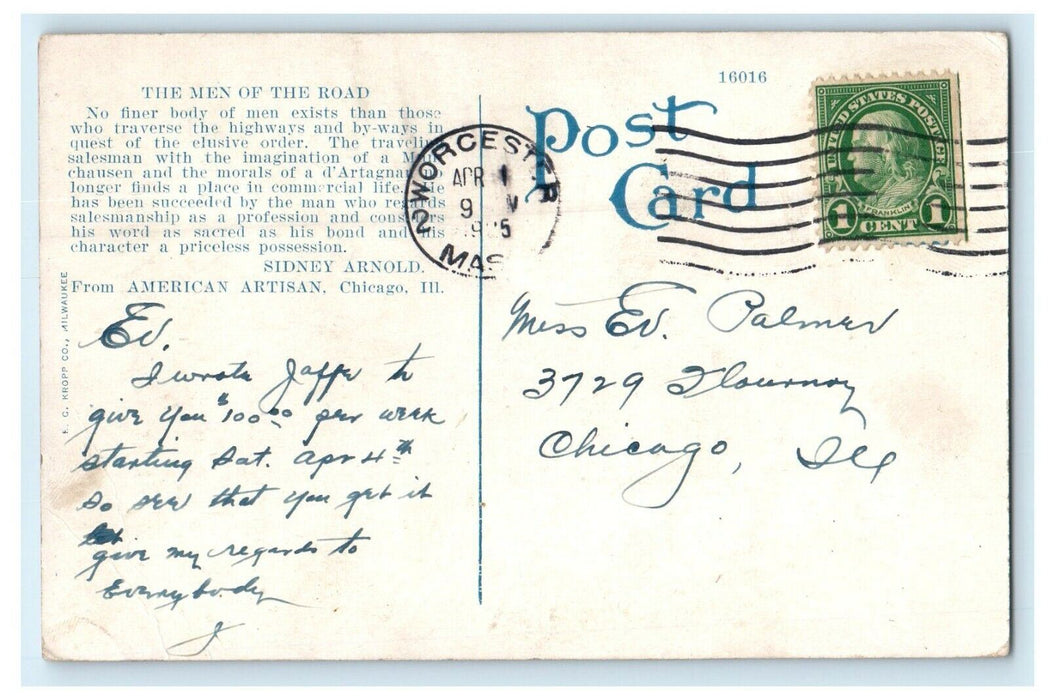 THE MEN OF THE ROAD
No finer body of men exists than those
who traverse the highways and by-ways in
quest of the elusive order. The traveling
salesman with the imagination of a Mun-
chausen and the morals of a d'Artagnan
longer finds a place in commercial life. He
has been succeeded by the man who regards
salesmanship as a profession and considers
his word as sacred as his bond and his
character a priceless possession.
SIDNEY ARNOLD.
From AMERICAN ARTISAN, Chicago, Ill.
E. C. KROPP CO., MILWAUKEE
Ed.
I wrote Jaffe to
give you $100.00 per week
starting Sat. Apr 4th
so see that you get it
give my regards to
Everybody
J
16016
Post
Card
WORCESTER
APR 1
9
MASS
UNITED STATES POSTAGE
FRANKLIN
1 CENT 1
Miss Ed. Palmer
3729 Flournoy
Chicago, Ill